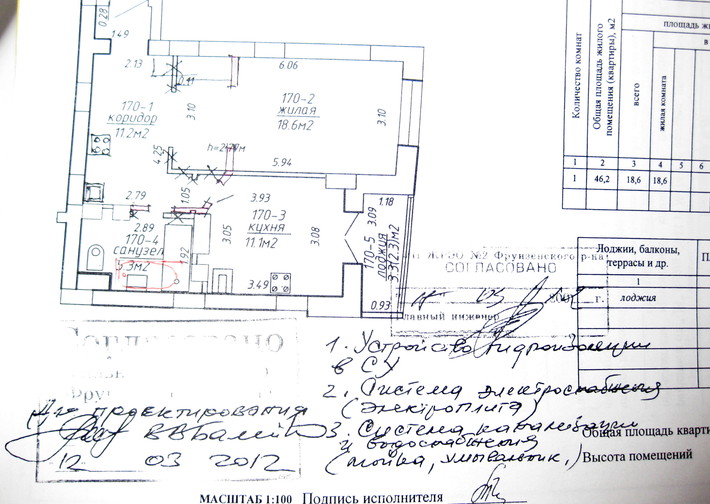 0.28
1.49
2.13
6.06
0.41
170-1
коридор
11.2м2
3.10
170-2
жилая
18.6м2
3.10
4.25
5.94
2.79
1.05
3.93
1.18
2.89
170-4
санузел
5.3м2
1.92
3.05
170-3
кухня
11.1м2
3.08
3.09
170-5
лоджия
3.49
0.93
Количество комнат
Общая площадь жилого
помещения (квартиры), м2
всего
жилая комната
1 2 3 4 5 6
1 46,2 18,6 18,6
Лоджии, балконы,
террасы и др.
1
лоджия
№2 Фрунзенского р-на
СОГЛАСОВАНО
03
г.
главный инженер
Согласовано
1. Устройство гидроизоляции
в СУ
2. Система электроснабжения
(электроплита)
3. Система канализации
и водоснабжения
(мойка, умывальник,)
Для проектирования
12 03 2012
Общая площадь кварти
Высота помещений
МАСШТАБ 1:100 Подпись исполнителя